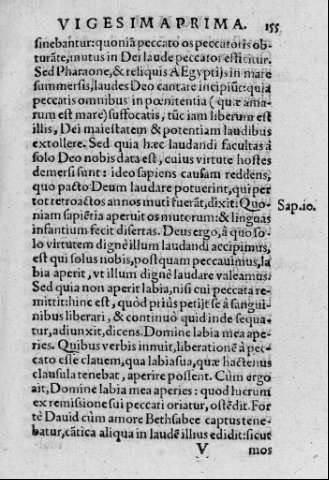 VIGESIMAPRIMA. 155
sinebantur: quoniã peccato os peccatoris ob-
turãte, mutus in Dei laude peccator efficitur.
Sed Pharaone, & reliquis AEgyptijs in mare
summersis, laudes Deo cantare incipiũt: quia
peccatis omnibus in pœnitentia (quæ ama-
rum est mare) suffocatis, tũc iam liberum est
illis, Dei maiestatem & potentiam laudibus
extollere. Sed quia hæc laudandi facultas á
solo Deo nobis data est, cuius virtute hostes
demersi sunt: ideo sapiens causam reddens,
quo pacto Deum laudare potuerint, qui per
tot retroactos annos muti fuerãt, dixit: Quo-
niam sapiẽtia aperuit os mutorum: & linguas Sap.10.
infantium fecit disertas. Deus ergo, á quo so-
lo virtutem dignè illum laudandi accipimus,
est qui solus nobis, postquam peccauimus, la-
bia aperit, vt illum dignè laudare valeamus.
Sed quia non aperit labia, nisi cui peccata re-
mittit: hinc est, quòd priùs petijt se à sangui-
nibus liberari, & continuò quid inde sequa-
tur, adiunxit, dicens. Domine labia mea ape-
ries. Quibus verbis innuit, liberationẽ à pec-
cato esse clauem, qua labia sua, quæ hactenus
clausula tenebat, aperire possent. Cùm ergo
ait, Domine labia mea aperies: quod lucrum
ex remissione sui peccati oriatur, ostẽdit. For
tè Dauid cùm amore Bethsabee captus tene-
batur, cãtica aliqua in laudẽ illius edidit: sicut
V mos